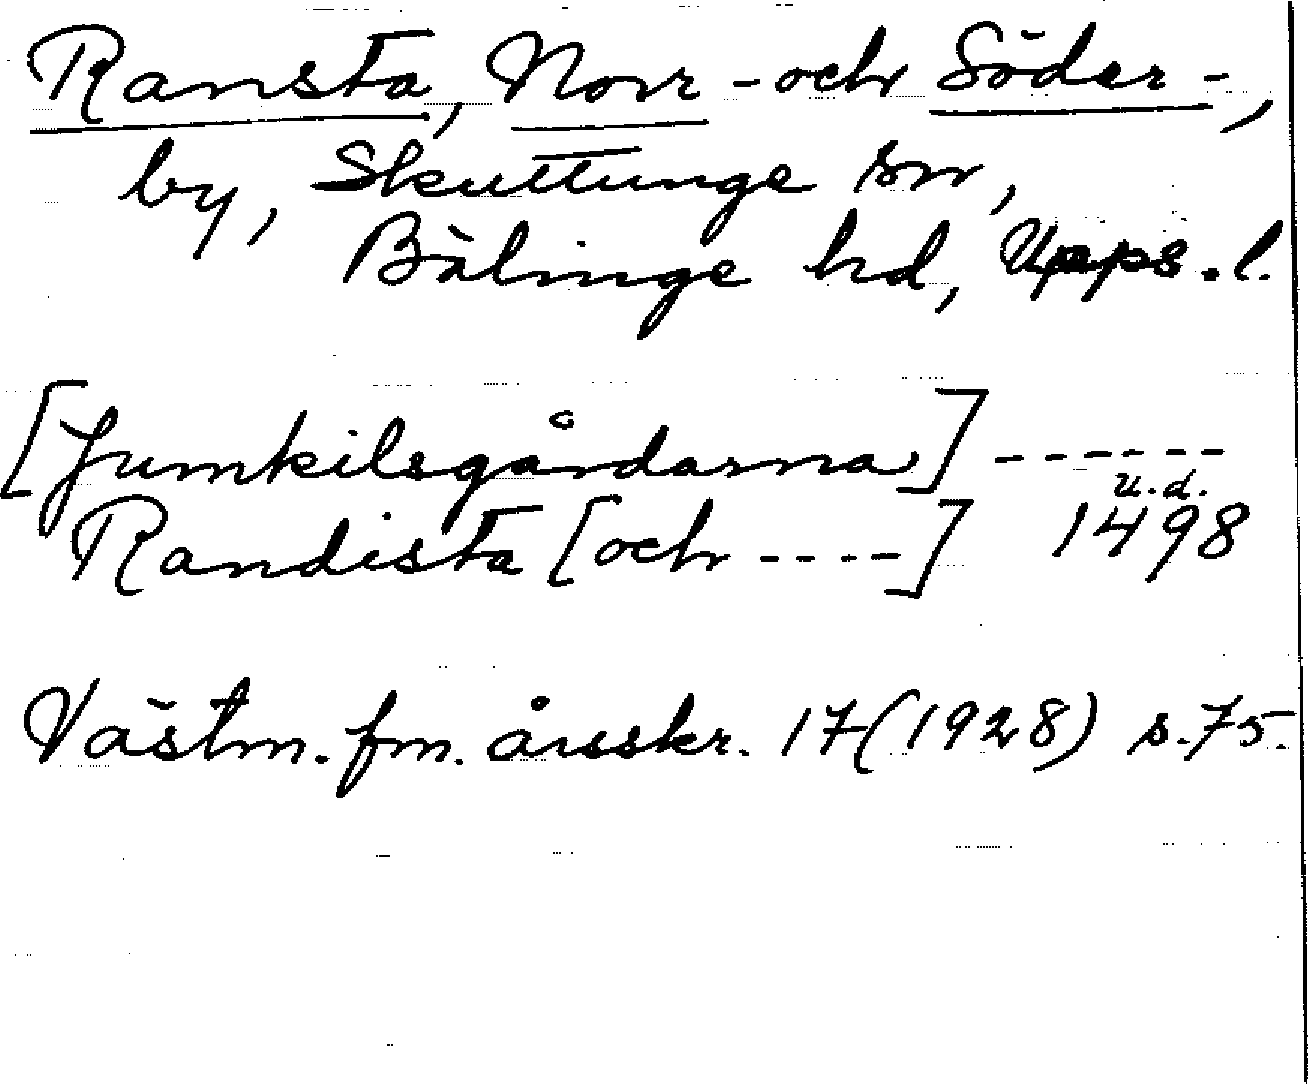 Ransta, Norr - och Söder -,
by, Skuttunge sn,
Bälinge hd, Upps. l.
[Jumkilsgårdarna] ------
u.d.
Randista [och ----] 1498
Västm. fm. årsskr. 17 (1928) s. 75.